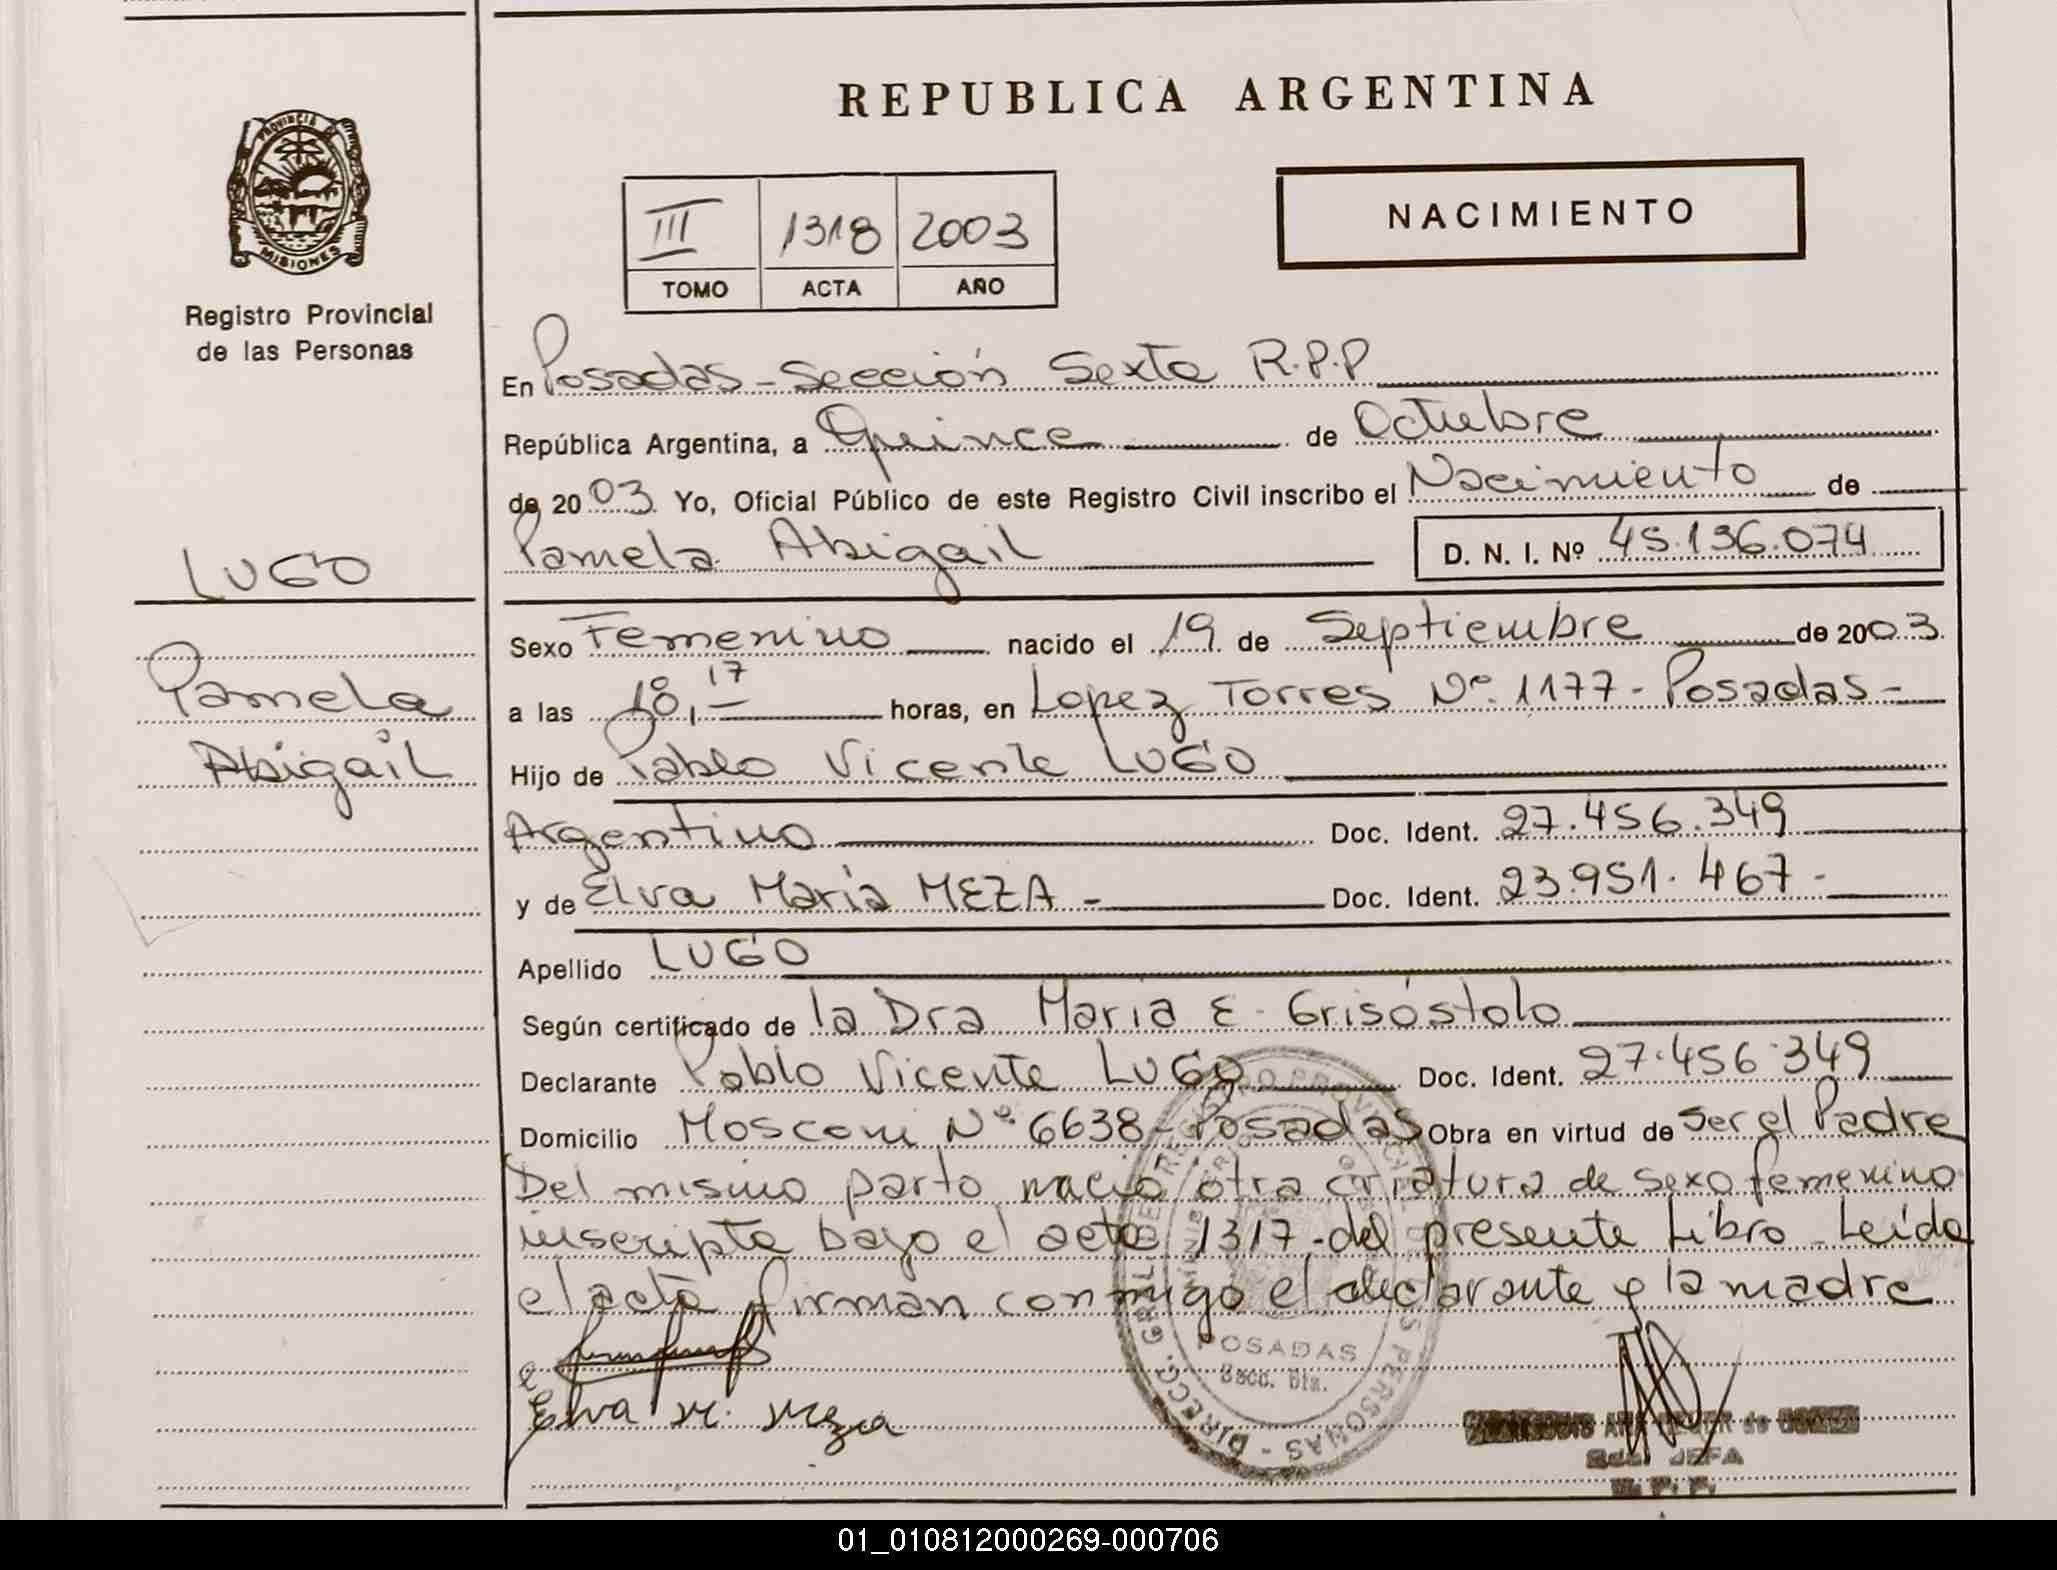 REPUBLICA ARGENTINA
PROVINCIA DE
MISIONES
Registro Provincial
de las Personas
III 1318 2003
TOMO ACTA AÑO
NACIMIENTO
En Posadas - Sección Sexta R.P.P
República Argentina, a Quince de Octubre
de 2003 Yo, Oficial Público de este Registro Civil inscribo el Nacimiento de
Pamela Abigail D. N. I. Nº 45.136.074
LUGO
Pamela
Abigail
Sexo Femenino nacido el 19 de Septiembre de 2003
a las 18,17 horas, en Lopez Torres Nº 1177 - Posadas -
Hijo de Pablo Vicente LUGO
Argentino Doc. Ident. 27.456.349
y de Elva María MEZA - Doc. Ident. 23.951.467 -
Apellido LUGO
Según certificado de la Dra Maria E. Grisóstolo
Declarante Pablo Vicente LUGO Doc. Ident. 27.456.349
Domicilio Mosconi Nº 6638 - Posadas Obra en virtud de ser el Padre
Del mismo parto nació otra criatura de sexo femenino
inscripta bajo el acta 1317 - del presente Libro - Leída
el acta firman conmigo el declarante y la madre
Elva M. Meza
POSADAS
JEFA
01_010812000269-000706